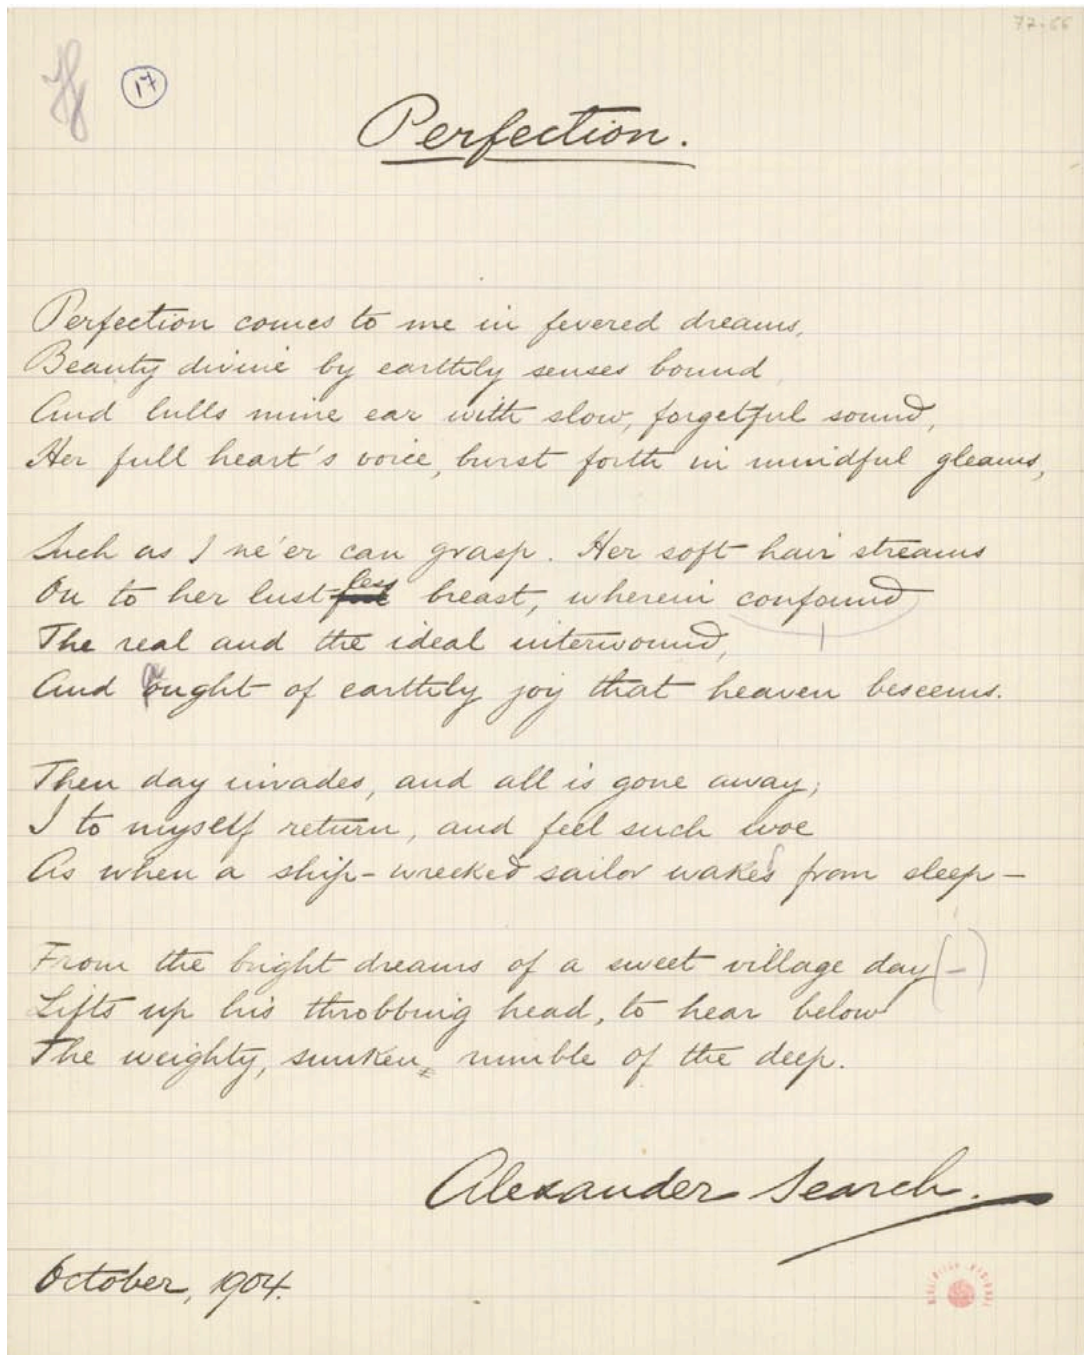 77-66
17
Perfection.
Perfection comes to me in fevered dreams,
Beauty divine by earthly senses bound
And lulls mine ear with slow, forgetful sound,
Her full heart's voice, burst forth in mindful gleams,
Such as I ne'er can grasp. Her soft hair streams
On to her lustless breast, wherein confound
The real and the ideal interwound,
And ought of earthly joy that heaven beseems.
Then day invades, and all is gone away;
I to myself return, and feel such woe
As when a ship-wrecked sailor wakes from sleep —
From the bright dreams of a sweet village day (-)
Lifts up his throbbing head, to hear below
The weighty, sunken rumble of the deep.
Alexander Search.
October, 1904.